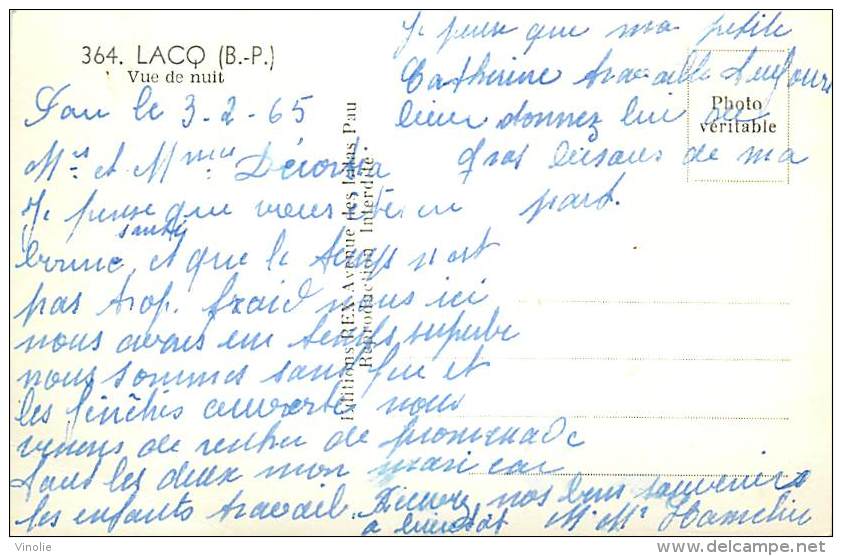 364. LACQ (B.-P.)
Vue de nuit
Pau le 3-2-65
Mrs et Mme
Je pense que vous êtes en
bonne santé, et que le temps n'est
pas trop froid nous ici
nous avons un temps superbe
nous sommes sans feu et
les fenêtres ouverte, nous
venons de rentrer de promenade
tous les deux mon mari car
les enfants travail.
Recevez nos bons souvenirs
a bientôt Mr Me Hamelin
Je pense que ma petite
Catherine travaille toujours
bien donnez lui de
gros bisous de ma
part.
Photo
véritable
Editions REX Avenue des Lilas Pau
Reproduction Interdite.
www.delcampe.net
Vinolie